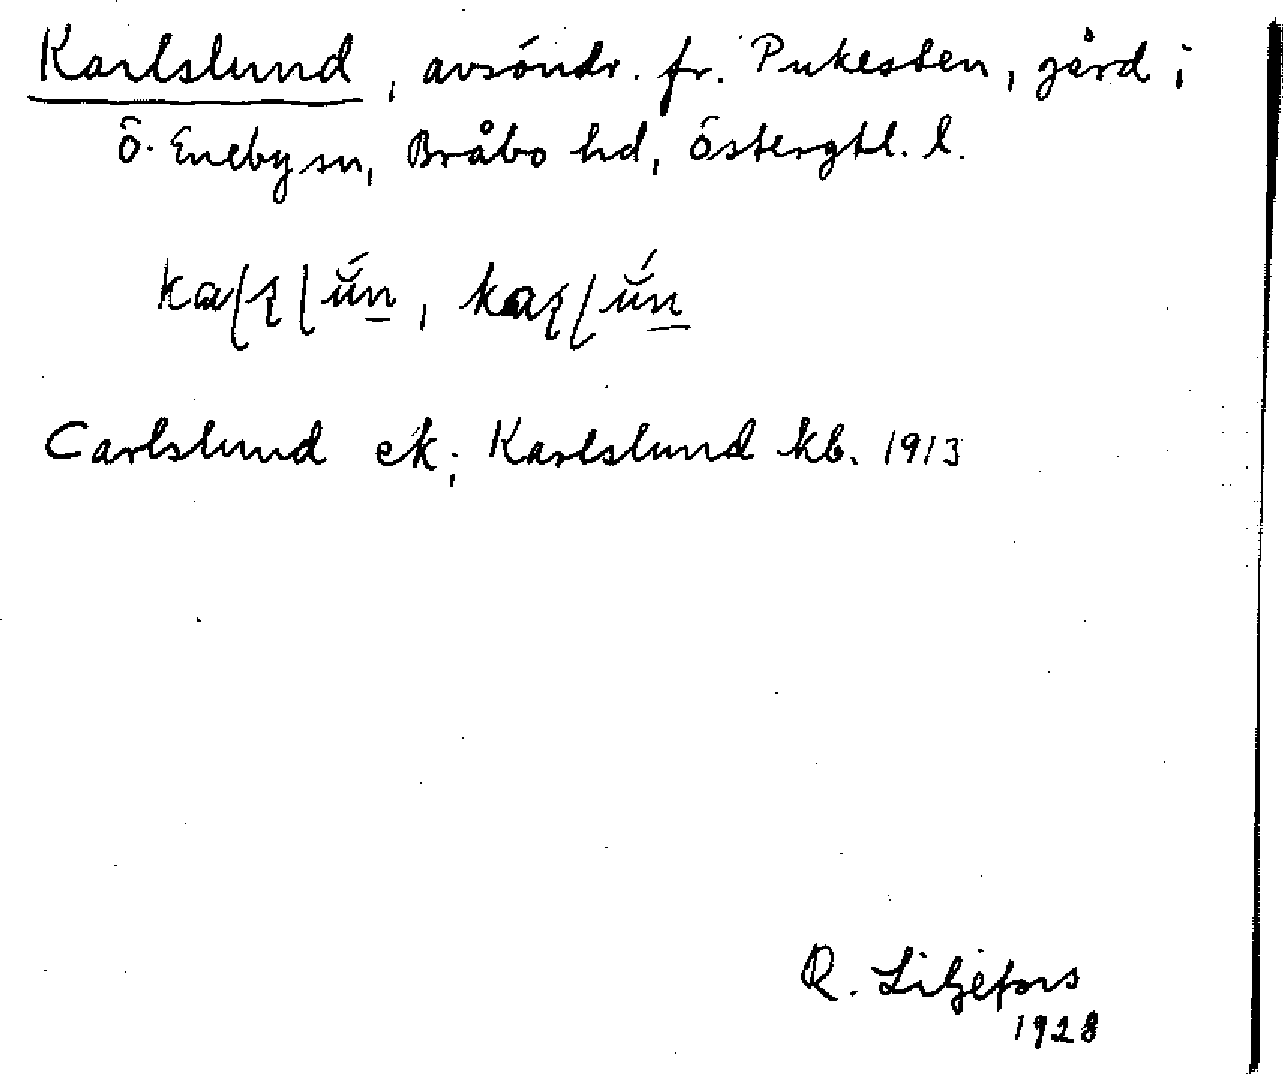 Karlslund, avsöndr. fr. Pukesten, gård i
Ö. Eneby sn, Bråbo hd, Östergtl. l.
Carlslund ek; Karlslund kb. 1913
R. Liljefors
1928